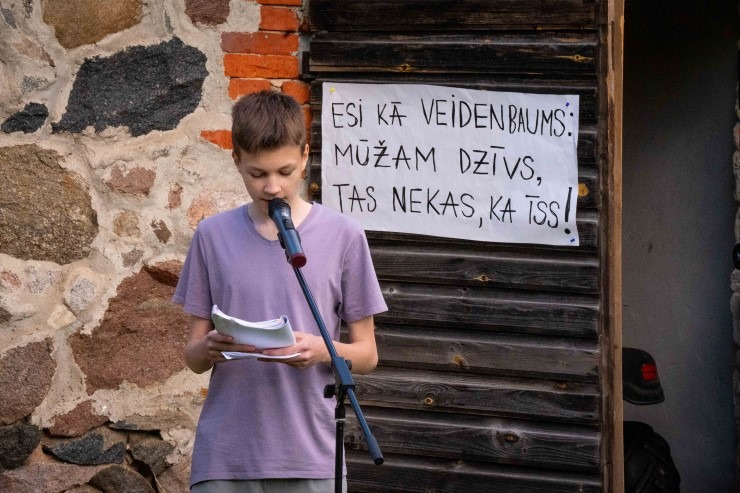 ESI KĀ VEIDENBAUMS:
MŪŽAM DZĪVS,
TAS NEKAS, KA ĪSS!